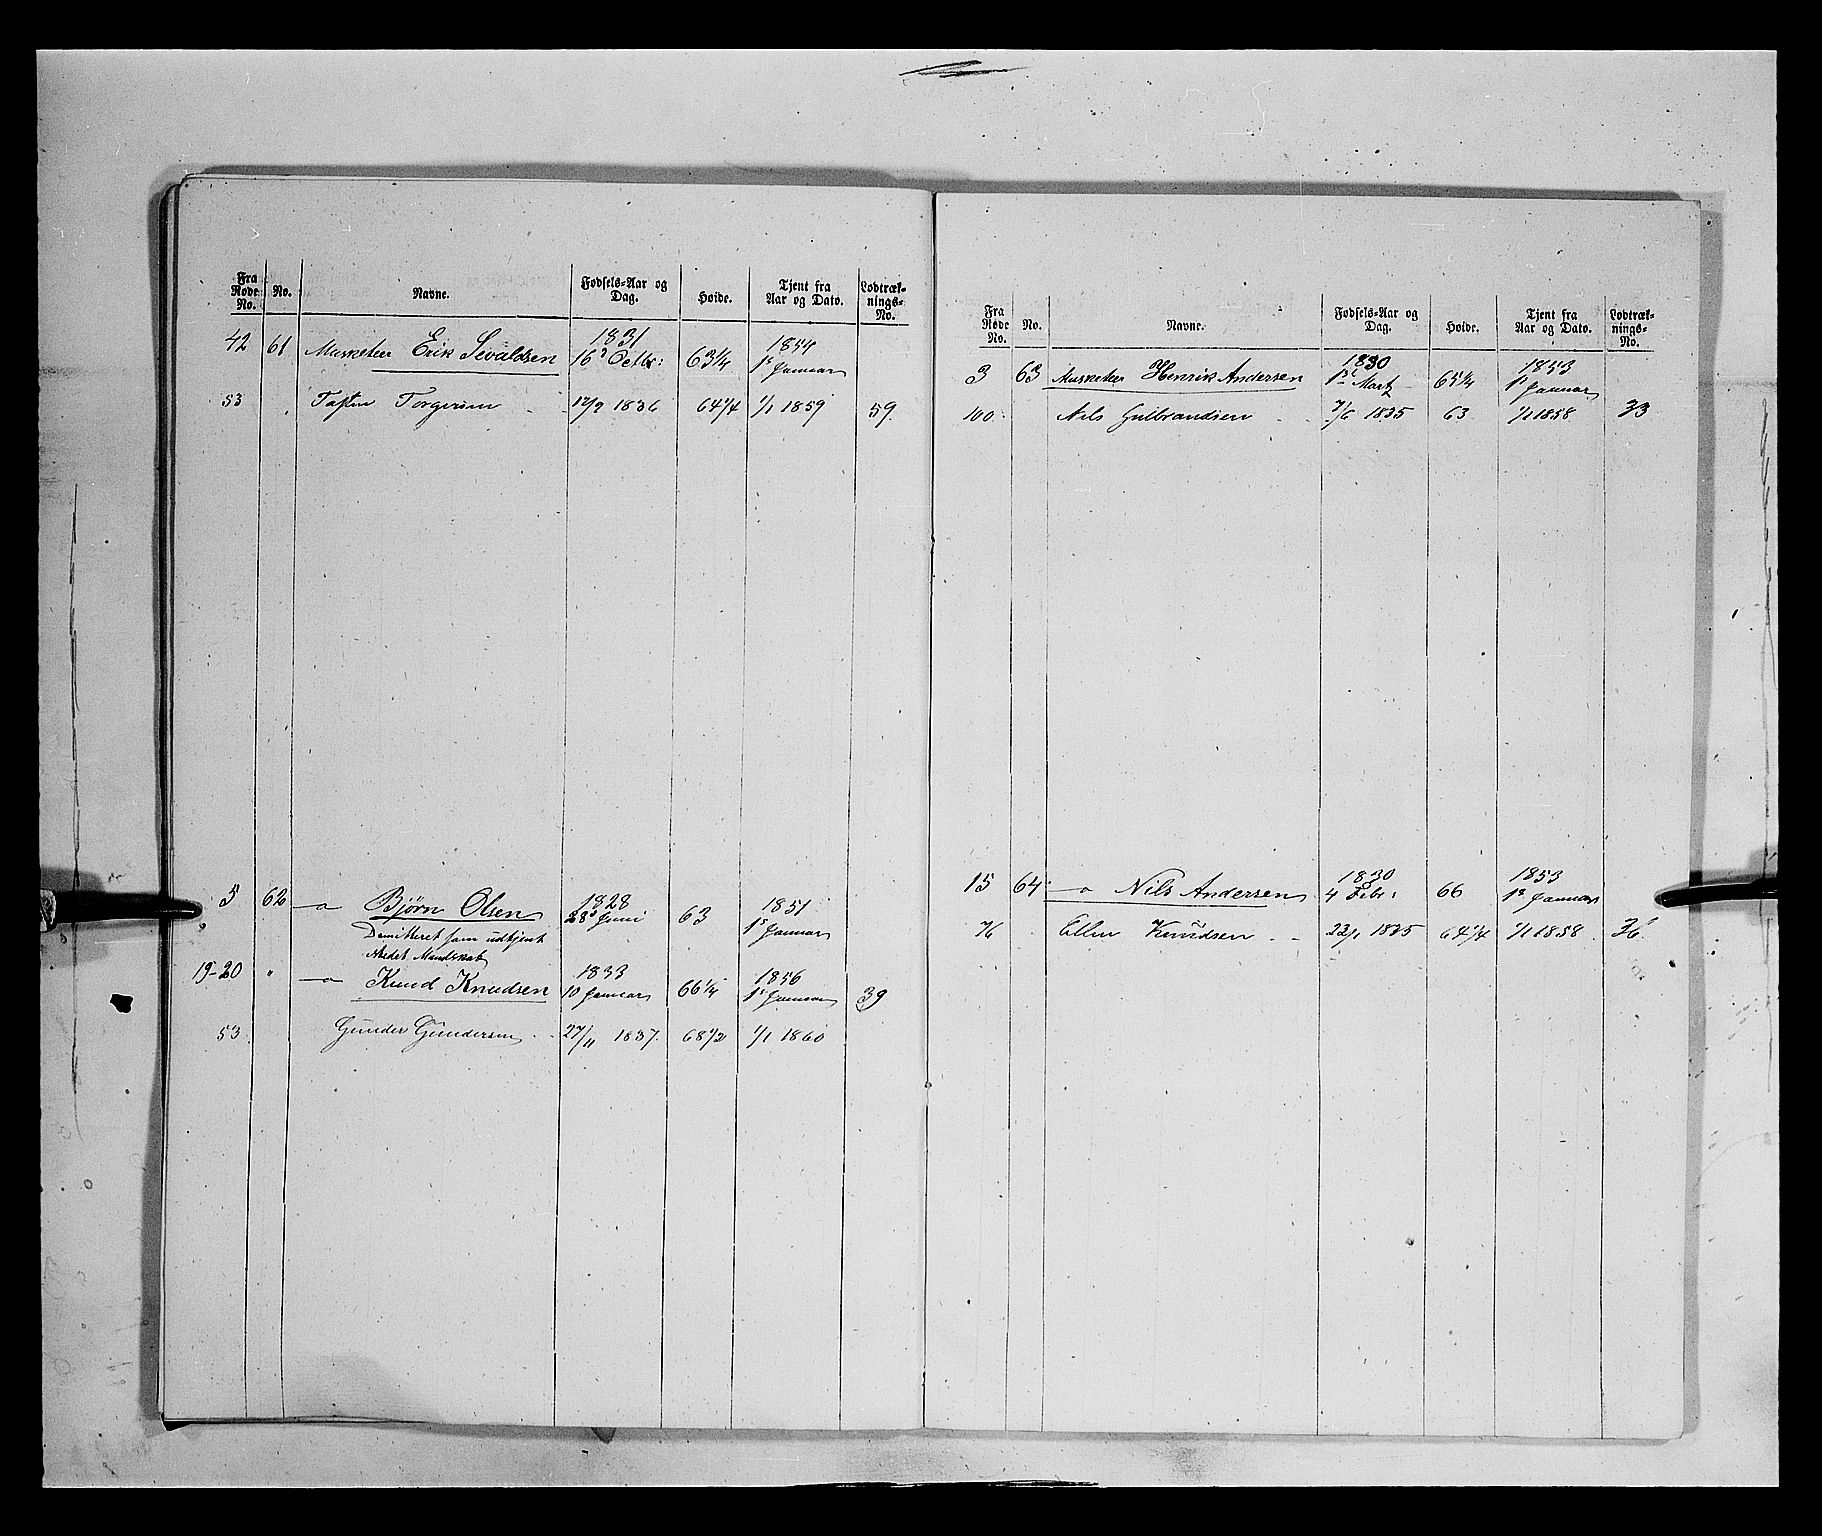 Fra Rode No. | No. | Navne. | Fødsels-Aar og Dag. | Høide. | Tjent fra Aar og Dato. | Lodtræk- nings- No.
42 | 61 | Musketeer Erik Sevaldsen | 1831 16d Octbr: | 63 1/4 | 1854 1s Januar
53 | Torgersen | 12/2 1836 | 64 1/4 | 1/1 1859 | 59.
5 | 62 | —"— Bjørn Olsen | 1828 28d Juni | 63 | 1851 1s Januar
Demitteret som udtjent
Mandskab
19-20 | " | —"— Knud Knudsen | 1833 10 Januar | 66 1/4 | 1856 1s Januar | 39
53 | Gunder Gundersen | 27/11 1837. | 68 1/2 | 1/1 1860
Fra Rode No. | No. | Navne. | Fødsels-Aar og Dag. | Høide. | Tjent fra Aar og Dato. | Lodtræk- nings- No.
3 | 63 | Musketeer Henrik Andersen | 1830 1s Martz | 65 1/4 | 1853 1s Januar
100. | Nils Gulbrandsen | 7/6 1835 | 63. | 1/1 1858 | 33
15 | 64 | —"— Nils Andersen | 1830 4 Febr: | 66 | 1853 1s Januar
76 | Ellen Knudsen | 22/1 1835 | 64 1/4 | 1/1 1858. | 36.